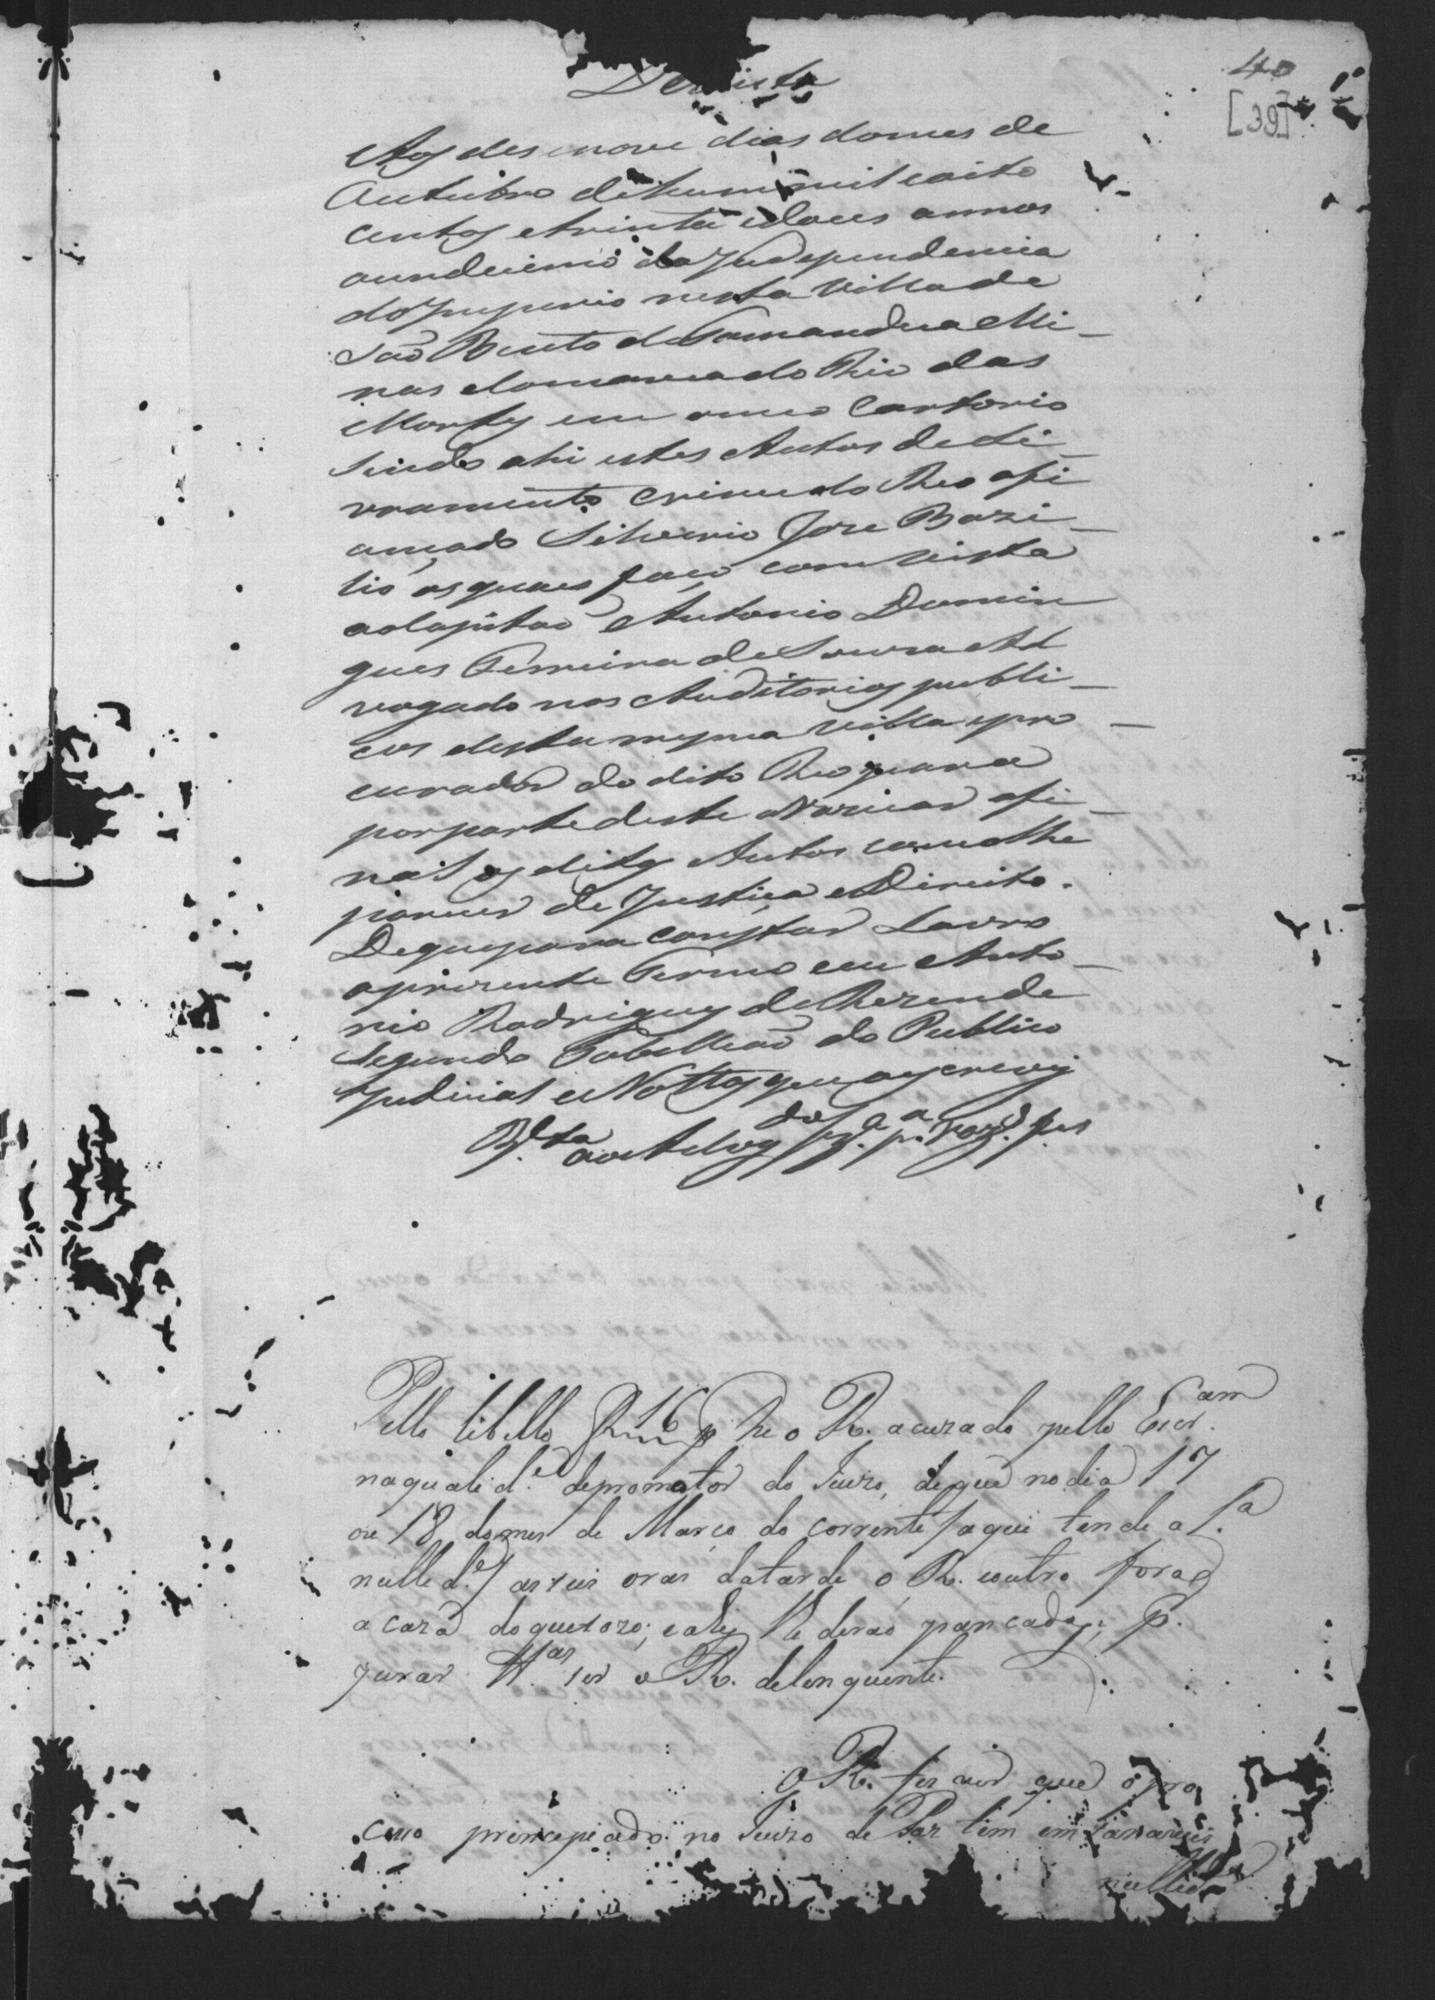 40
[39]
De vista
Aos des e nove dias do mes de
Outubro de hum mil e oito
centos e trinta e dous annos
oundecimo da Independencia
do Imperio nesta Villa de
São Bento do Tamandua Mi-
nas e Comarca do Rio das
Mortes em o meo Cartorio
sendo ahi estes Autos de Li-
vramento Crime do Reo afi
ançado Silverio Jose Bazi-
lio os quaes faço com vista
ao Capitão Antonio Domin
gues Ferreira de Souza Ad
vogado nos Auditorios publi-
cos desta mesma villa e pro-
curador do dito Reo para
por parte deste Arrazoar afi-
nal os ditos Autos como lhe
parecer de Justiça e Direito.
De que para constar Lavro
o prezente Termo eu Anto-
nio Rodrigues de Rezende
Segundo Tabelleão do Publico
Judicial e Nottas que o escrevy
V.ta ao Advog.do
Pello libello he o R. acuzado pello Escr.am
na qualid.e de promotor do Juizo, de que no dia 17
ou 18 do mes de Março do corrente
nullid.e / as seis oras da tarde o R. e outro forão
a caza do queixozo; e ahy lhe derão pancadas; p.
jurar tt.as ser o R. delenquente.
O R. fes ver que o pro
cesso prencepiado no Juizo de Paz tem em
nullid.es